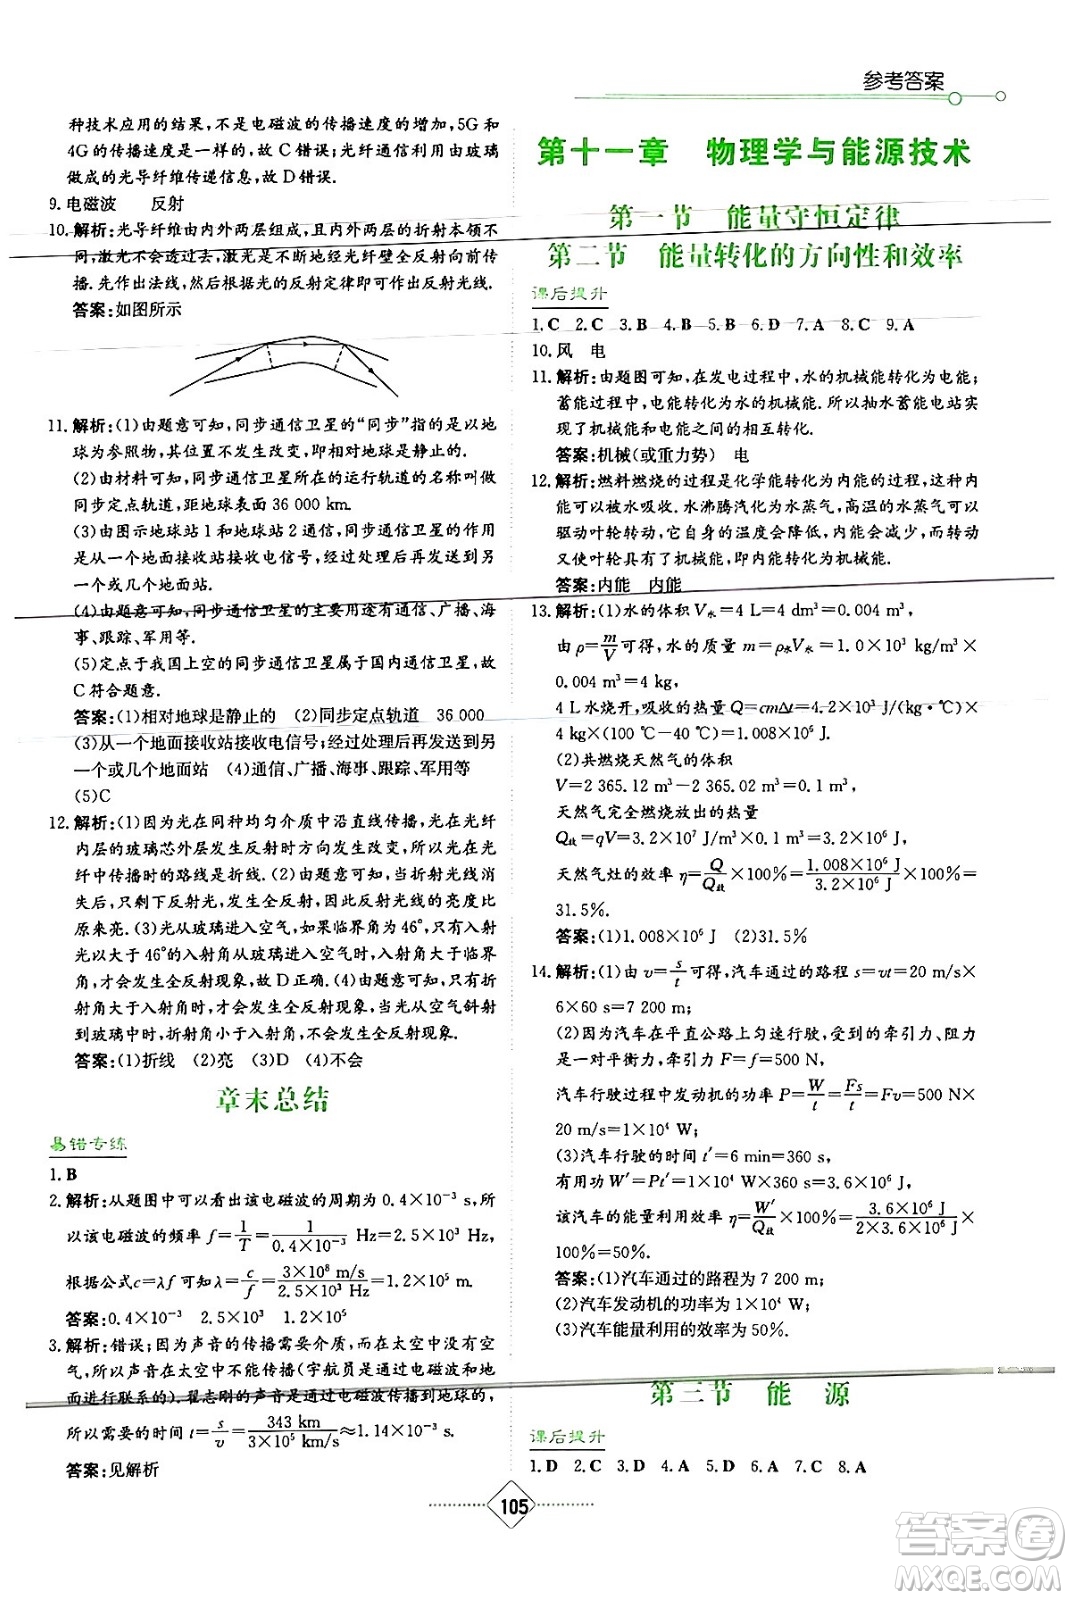 参考答案
种技术应用的结果,不是电磁波的传播速度的增加,5G和
4G的传播速度是一样的,故C错误;光纤通信利用玻璃
做成的光导纤维传递信息,故D错误.
9.电磁波  反射
10.解析:光导纤维由内外两层组成,且内外两层的折射本领不
同,激光不会透过去;激光是不断地经光纤壁全反射向前传
播.先作出法线,然后根据光的反射定律即可作出反射光线.
答案:如图所示
11.解析:(1)由题意可知,同步通信卫星的“同步”指的是以地
球为参照物,其位置没有发生改变,即相对地球是静止的.
(2)由材料可知,同步通信卫星所在的运行轨道的名称叫
同步定点轨道,距地球的高度为36 000 km.
(3)由图示地球站1和地球站2通信,同步通信卫星的作用
是从一个地面接收站接收电信号,经过处理后再发送到另
一个或几个地面站.
(4)由题意可知,同步通信卫星的主要用途有通信、广播、海
事、跟踪、军用等.
(5)定点于我国上空的同步通信卫星属于国内通信卫星,故
C符合题意.
答案:(1)相对地球是静止的  (2)同步定点轨道  36 000
(3)从一个地面接收站接收电信号;经过处理后再发送到另
一个或几个地面站  (4)通信、广播、海事、跟踪、军用等
(5)C
12.解析:(1)因为光在同种均匀介质中沿直线传播,光在光纤
内层的玻璃芯外层发生反射时方向发生改变,所以光在光
纤中传播的路线是折线.(2)由题意可知,此时折射光线消
失后,只剩下反射光,根据能量守恒,反射光线的亮度比
原来亮.(3)光从玻璃进入空气,如果临界角为46°,所
以光以大于46°的入射角从玻璃进入空气,入射角大于临界
角,才会产生全反射现象,故D正确.(4)由题意可知,折射
角大于入射角时,才会发生全反射现象,当光从空气斜射
到玻璃中时,折射角小于入射角,不会发生全反射现象.
答案:(1)折线  (2)亮  (3)D  (4)不会
章末总结
易错专练
1.B
2.解析:从题图中可以看出该电磁波的周期为0.4×10⁻³ s,所
以该电磁波的频率f=1/T=1/(0.4×10⁻³ s) Hz=2.5×10³ Hz,
根据公式c=λf可知λ=c/f=(3×10⁸ m/s)/(2.5×10³ Hz)=1.2×10⁵ m.
答案:0.4×10⁻³  2.5×10³  1.2×10⁵
3.解析:错误;因为声音的传播需要介质,而在太空中没有空
气,所以声音在太空中不能传播(宇航员是通过电磁波和地
面进行联系的).翟志刚的声音是通过电磁波传播到地球的,
所以需要的时间t=s/v=(343 km)/(3×10⁵ km/s)≈1.14×10⁻³ s.
答案:见解析
第十一章  物理学与能源技术
第一节  能量守恒定律
第二节  能量转化的方向性和效率
课后提升
1.C  2.C  3.B  4.B  5.B  6.D  7.A  8.C  9.A
10.风  电
11.解析:由题图可知,在发电过程中,水的机械能转化为电能;
蓄能过程中,电能转化为水的机械能.所以抽水蓄能电站实
现了机械能和电能之间的相互转化.
答案:机械(或重力势)  电
12.解析:燃料燃烧的过程是化学能转化为内能的过程,这些内
能可以被水吸收.水沸腾汽化为水蒸气,高温的水蒸气可以
驱动叶轮转动,它自身的温度会降低,内能会减少,而转动会
使叶轮具有了机械能,即内能转化为机械能.
答案:内能  内能
13.解析:(1)水的体积V水=4 L=4 dm³=0.004 m³,
由ρ=m/V可得,水的质量m=ρ水V水=1.0×10³ kg/m³×
0.004 m³=4 kg,
4 L水烧开,吸收的热量Q=cmΔt=4.2×10³ J/(kg·℃)×
4 kg×(100 ℃−40 ℃)=1.008×10⁶ J.
(2)共燃烧天然气的体积
V=2 365.12 m³−2 365.02 m³=0.1 m³,
天然气完全燃烧放出的热量
Q放=qV=3.2×10⁷ J/m³×0.1 m³=3.2×10⁶ J,
天然气灶的效率η=Q/Q放×100%=(1.008×10⁶ J)/(3.2×10⁶ J)×100%=
31.5%.
答案:(1)1.008×10⁶ J  (2)31.5%
14.解析:(1)由v=s/t可得,汽车通过的路程s=vt=20 m/s×
6×60 s=7 200 m;
(2)因为汽车在平直公路上匀速行驶,受到的牵引力、阻力
是一对平衡力,所以牵引力F=f=500 N,
汽车行驶过程中发动机的功率P=W/t=Fs/t=Fv=500 N×
20 m/s=1×10⁴ W;
(3)汽车行驶的时间t′=6 min=360 s,
有用功W′=Pt′=1×10⁴ W×360 s=3.6×10⁶ J,
该汽车的能量利用效率η=W′/Q放×100%=(3.6×10⁶ J)/(2×3.6×10⁶ J)×
100%=50%.
答案:(1)汽车通过的路程为7 200 m;
(2)汽车发动机的功率为1×10⁴ W;
(3)汽车能量利用的效率为50%.
第三节  能  源
课后提升
1.D  2.C  3.D  4.D  5.A  6.D  7.C  8.A
105
答案圈
MXQE.COM